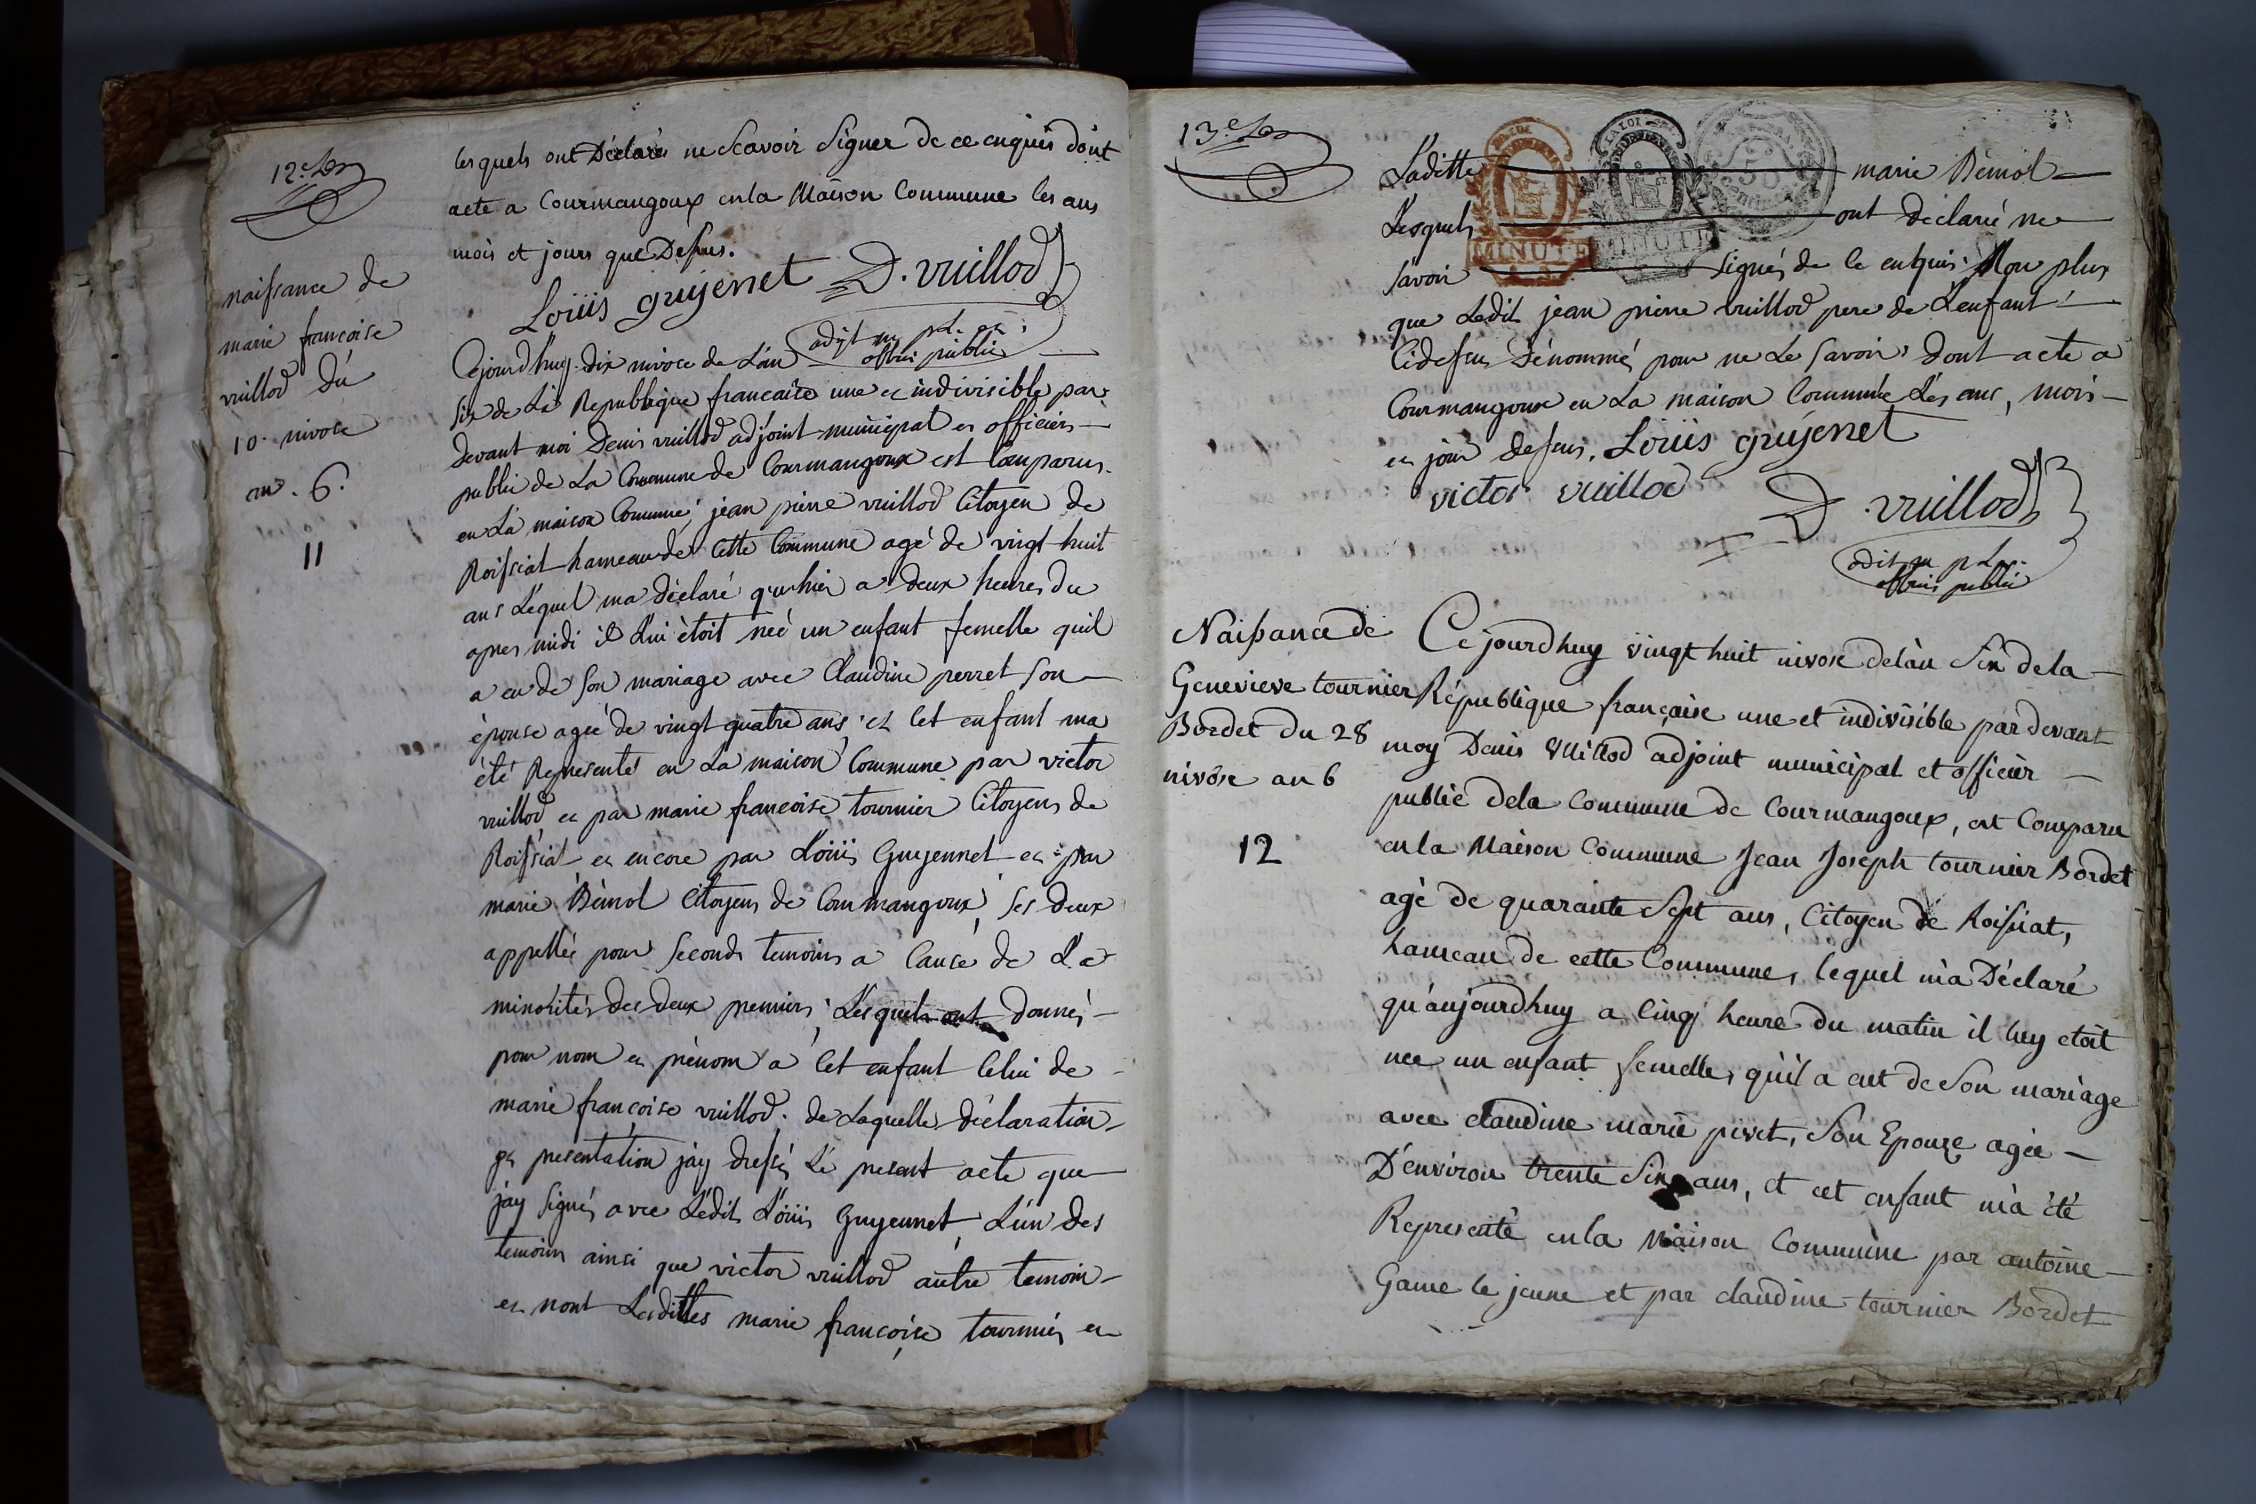 12.e
lesquels ont Déclaré ne Scavoir Signer de ce enquis dont
acte a Courmangoux en la Maison Commune les ans
mois et jours que Dessus.
Loüis guyenet D. vuillod
adjt
officier public
naissance de
marie francoise
vuillod du
10. nivose
an. 6.
11
Cejourdhuy dix nivose de L'an
six de La Republique francaise une et indivisible par
devant moi Denis vuillod adjoint municipal et officiers
public de La Commune de Courmangoux est Comparus
en La maison Commune jean pierre vuillod Citoyen de
Roissiat hameau de Cette Commune agé de vingt huit
ans Lequel ma déclaré qu'hier a deux heures du
apres midi il Lui étoit neé un enfant femelle quil
a eu de Son mariage avec Claudine perret Son
épouse ageé de vingt quatre ans, et Cet enfant ma
été Representé en La maison Commune par victor
vuillod et par marie francoise tournier Citoyens de
Roissiat et encore par Loüis Guyennet et par
marie Bémol Citoyens de Courmangoux, Ses deux
appellés pour Seconds temoins a Cause de La
minorités des deux premiers, Lesquels ont donnés
pour nom et prénom a Cet enfant Celui de
marie françoise vuillod. de Laquelle déclaration
et presentation jáy dressés Le present acte que
jáy Signés avec Ledit Loüis Guyennet, L'un des
temoins ainsi que victor vuillod autre temoin
et nont Lesdittes marie francoise tournier et
13.e
MINUTE
LA LOI
MINUTE
50
Laditte marie Bémol
Lesquels ont déclaré ne
Savoir signés de Ce enquis. Non plus
que Ledit jean pierre vuillod pere de L'enfant
Cidessus Dénommé, pour ne Le Savoir, dont acte a
Courmangoux en La maison Commune Les ans, mois
et jour dessus. Loüis guyenet
victor vuillod D. vuillod
adjt
officier public
Naissance de
Genevieve tournier
Bordet du 28
nivôse an 6
12
Cejourdhuy vingt huit nivose de lan Six de la
République française une et indivisible par devant
moy Denis Vuillod adjoint municipal et officier
public de la Commune de Courmangoux, est Comparu
en la Maison Commune Jean Joseph tournier Bordet
agé de quarante Sept ans, Citoyen de Roissiat,
hameau de cette Commune, lequel m'a Déclaré
qu'aujourdhuy a Cinq heure du matin il luy etoit
nee un enfant femelle, qu'il a eut de Son mariage
avec claudine marie pivet, Son Epouze agée
D'environ trente Six ans, et cet enfant m'a été
Representé en la Maison Commune par antoine
Game le jeune et par claudine tournier Bordet